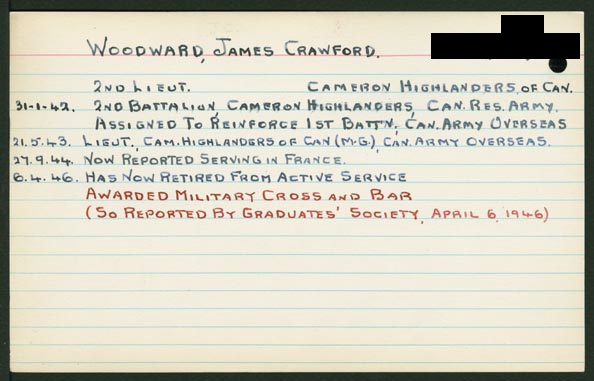 WOODWARD, JAMES CRAWFORD.
2ND LIEUT. CAMERON HIGHLANDERS, OF CAN.
31-1-42. 2ND BATTALION, CAMERON HIGHLANDERS, CAN. RES. ARMY.
ASSIGNED TO REINFORCE 1ST BATT'N, CAN. ARMY OVERSEAS
21.5.43. LIEUT., CAM. HIGHLANDERS OF CAN (M.G.), CAN. ARMY OVERSEAS.
27.9.44. NOW REPORTED SERVING IN FRANCE.
6.4.46. HAS NOW RETIRED FROM ACTIVE SERVICE
AWARDED MILITARY CROSS AND BAR
(SO REPORTED BY GRADUATES' SOCIETY, APRIL 6, 1946)